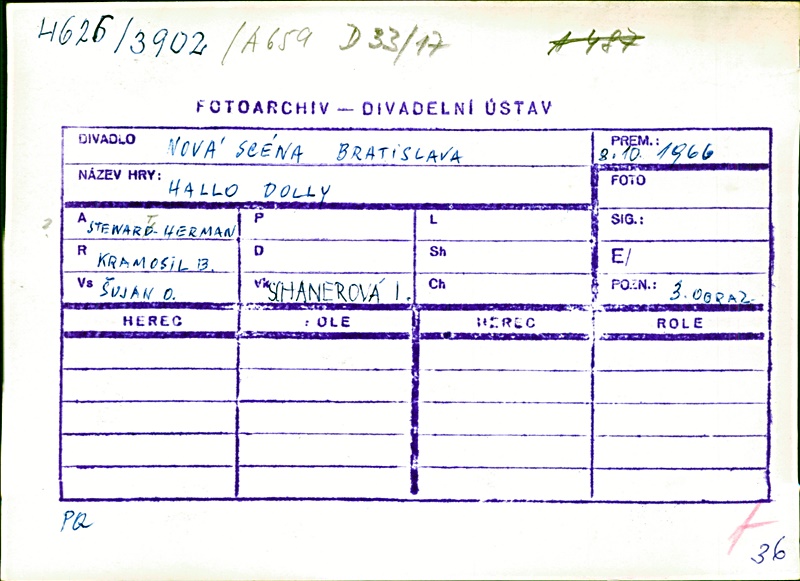 4626/3902 /A659 D33/17 A487
FOTOARCHIV — DIVADELNÍ ÚSTAV
DIVADLO NOVÁ SCÉNA BRATISLAVA
PREM.: 8.10. 1966
NÁZEV HRY: HALLO DOLLY
FOTO
A STEWARD-HERMAN P L SIG.:
R KRAMOSIL B. D Sh E/
Vs ŠUJAN O. Vk SCHANEROVÁ I. Ch POZN.: 3. OBRAZ
HEREC ROLE HEREC ROLE
PQ
36